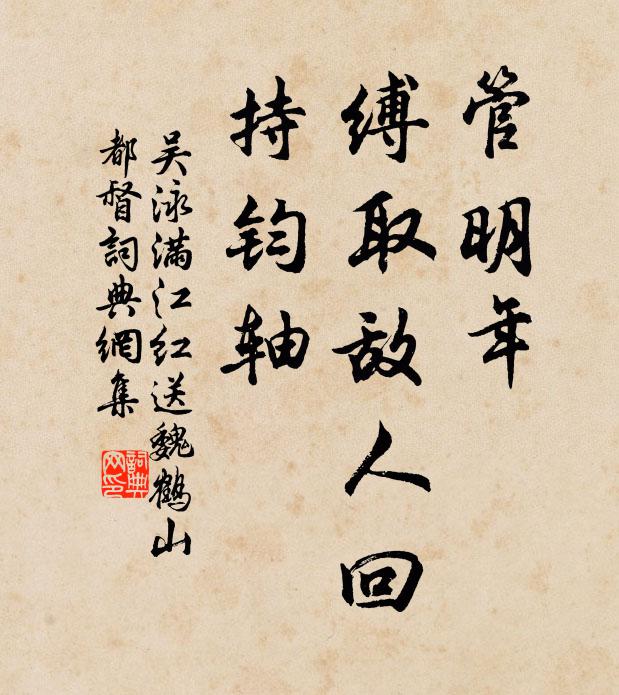 管明年
缚取敌人回
持钧轴
吴泳满江红送魏鹤山
都督詞典網集
詞典
网印